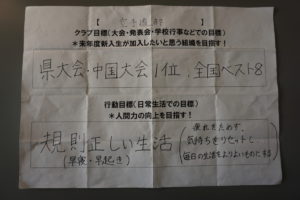 【空手道部】
クラブ目標(大会・発表会・学校行事などでの目標)
*来年度新入生が加入したいと思う組織を目指す!
県大会・中国大会1位、全国ベスト8
行動目標(日常生活での目標)
*人間力の向上を目指す!
規則正しい生活
(早寝・早起き)
疲れをためず、
気持ちをリセットし
毎日の生活をよりよいものにする